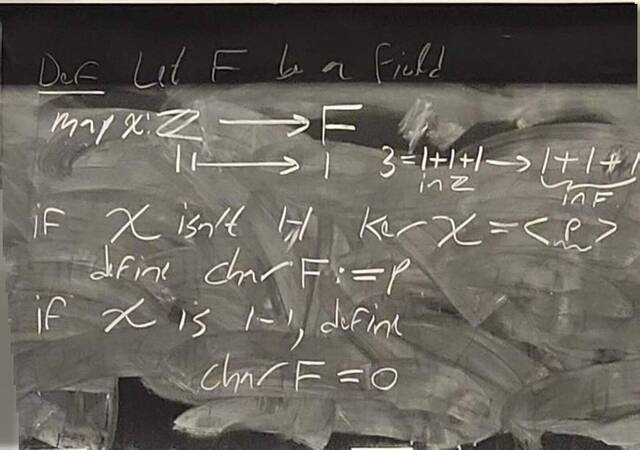 Def Let F be a field
map χ: ℤ → F
1 ↦ 1 3 = 1+1+1 → 1+1+1
in ℤ in F
if χ isn't 1-1, Ker χ = <p>
define char F := p
if χ is 1-1, define
char F = 0